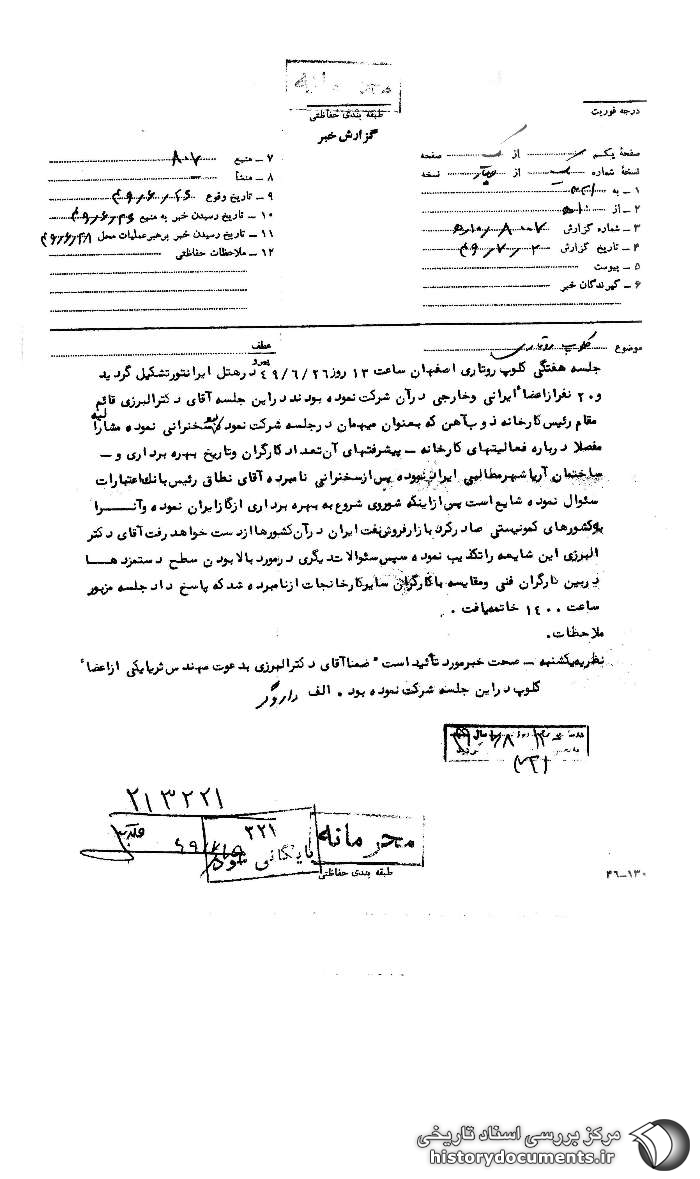 محرمانه
طبقه بندی حفاظتی
گزارش خبر
درجه فوریت
صفحهٔ یکم از صفحه
نسخهٔ شماره از نسخه
۱ ـ به
۲ ـ از
۳ ـ شماره گزارش
۴ ـ تاریخ گزارش ۴۹٫۷٫۲
۵ ـ پیوست
۶ ـ گیرندگان خبر
۷ ـ منبع ۸۰۷
۸ ـ منشأ
۹ ـ تاریخ وقوع ۴۹٫۶٫۲۶
۱۰ ـ تاریخ رسیدن خبر به منبع ۴۹٫۶٫۲۶
۱۱ ـ تاریخ رسیدن خبر برهبر عملیات محل ۴۹٫۶٫۲۸
۱۲ ـ ملاحظات حفاظتی
موضوع کلوپ روتاری
عطف
پیرو
جلسه هفتگی کلوپ روتاری اصفهان ساعت ۱۳ روز ۴۹/۶/۲۶ درهتل ایرانتور تشکیل گردید
و۲۰ نفرازاعضاء ایرانی وخارجی درآن شرکت نموده بودند دراین جلسه آقای دکترالبرزی قائم
مقام رئیس کارخانه ذوب آهن که بعنوان میهمان درجلسه شرکت نموده بود سخنرانی نموده مشارالیه
مفصلا درباره فعالیتهای کارخانه ـ پیشرفتهای آن تعداد کارگران وتاریخ بهره برداری و ـ
ساختمان آریاشهر مطالبی ایراد نموده پس ازسخنرانی نامبرده آقای نطاق رئیس بانک اعتبارات
سئوال نموده شایع است پس ازاینکه شوروی شروع به بهره برداری ازگازایران نموده وآنرا
به کشورهای کمونیستی صادرکرد بازارفروش نفت ایران درآن کشورها ازدست خواهد رفت آقای دکتر
البرزی این شایعه راتکذیب نموده سپس سئوالات دیگری درمورد بالابودن سطح دستمزدها
دربین کارگران فنی ومقایسه باکارگران سایرکارخانجات ازنامبرده شدکه پاسخ داد جلسه مزبور
ساعت ۱۴۰۰ خاتمه یافت .
ملاحظات.
نظریه یکشنبه ـ صحت خبرمورد تائید است " ضمناآقای دکترالبرزی بدعوت مهندس ثریایکی ازاعضاء
کلوپ دراین جلسه شرکت نموده بود . الف
۲۱۳۲۲۱
۳۲۱
بایگانی شود
محرمانه
طبقه بندی حفاظتی
۴۶ـ۱۳۰
مرکز بررسی اسناد تاریخی
historydocuments.ir